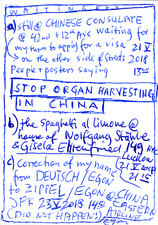 WAITING FOR
a) still @ CHINESE CONSULATE
@ 42nd + 12th Ave waiting for
my turn to apply for a visa 21 V
on the other side of street 2018
People + posters saying 13:00
STOP ORGAN HARVESTING
IN CHINA
b) the spaghetti al limone @
house of Wolfgang Stähle
& Gisela Ehrenfried 149
Ludlow
c) correction of my name 21 V
from DEUTSCH/EGON 21:15
to ZIPPEL/EGON @ CHINA
JFK 23 V 2018 1415 EASTERN
(DID NOT HAPPEN!) AIRLINE